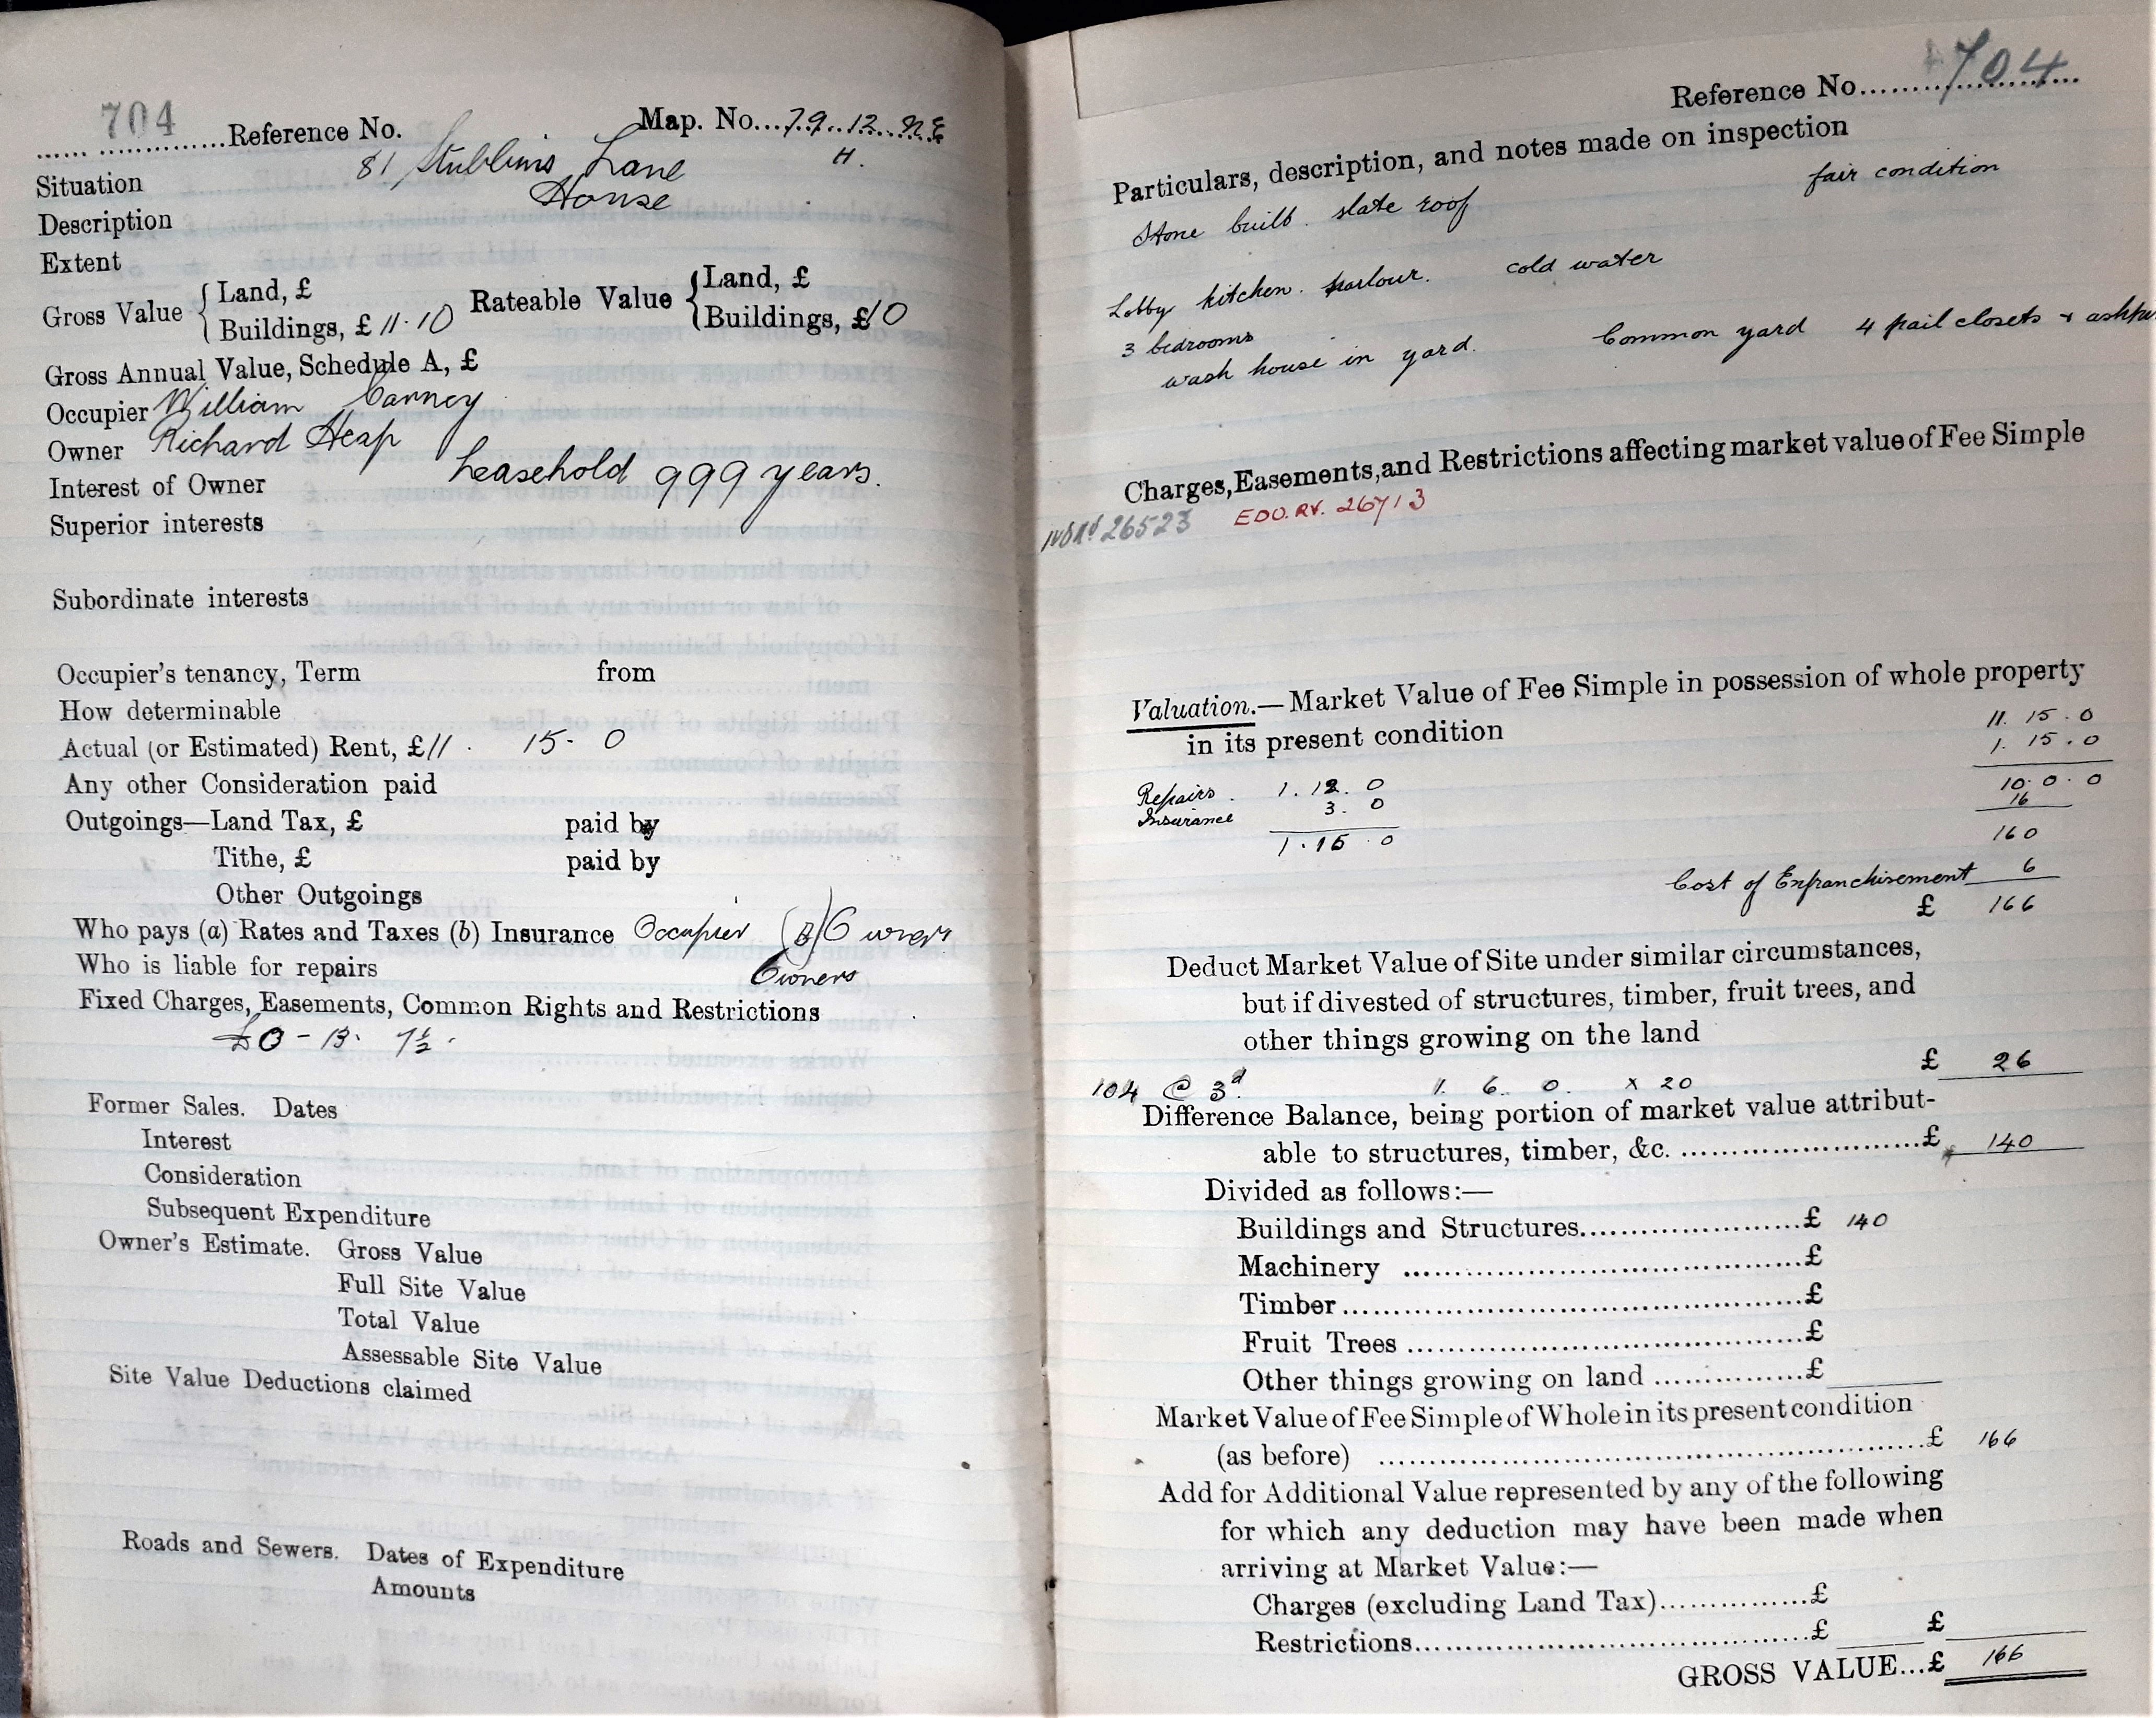 704
Reference No. Map. No. 79. 12. N.E
H.
Situation 81 Stubbins Lane
Description House
Extent
Gross Value { Land, £
Buildings, £ 11.10
Rateable Value { Land, £
Buildings, £10
Gross Annual Value, Schedule A, £
Occupier William Carney
Owner Richard Heap
Interest of Owner Leasehold 999 years.
Superior interests
Subordinate interests
Occupier's tenancy, Term from
How determinable
Actual (or Estimated) Rent, £11. 15. 0
Any other Consideration paid
Outgoings—Land Tax, £ paid by
Tithe, £ paid by
Other Outgoings
Who pays (a) Rates and Taxes (b) Insurance Occupier (B) Owners
Who is liable for repairs Owners
Fixed Charges, Easements, Common Rights and Restrictions
£0 - 13. 7½.
Former Sales. Dates
Interest
Consideration
Subsequent Expenditure
Owner's Estimate. Gross Value
Full Site Value
Total Value
Assessable Site Value
Site Value Deductions claimed
Roads and Sewers. Dates of Expenditure
Amounts
Reference No. 704
Particulars, description, and notes made on inspection
Stone built. slate roof fair condition
Lobby kitchen. parlour. cold water
3 bedrooms
wash house in yard. Common yard 4 pail closets &
Charges, Easements, and Restrictions affecting market value of Fee Simple
26523 EDO. RV. 26713
Valuation.—Market Value of Fee Simple in possession of whole property
in its present condition
11. 15. 0
1. 15. 0
Repairs. 1. 12. 0 10. 0. 0
Insurance 3. 0 16
1. 15. 0 160
Cost of Enfranchisement 6
£ 166
Deduct Market Value of Site under similar circumstances,
but if divested of structures, timber, fruit trees, and
other things growing on the land
£ 26
104 @ 3d. 1. 6. 0. x 20
Difference Balance, being portion of market value attribut-
able to structures, timber, &c. £ 140
Divided as follows:—
Buildings and Structures £ 140
Machinery £
Timber £
Fruit Trees £
Other things growing on land £
Market Value of Fee Simple of Whole in its present condition
(as before) £ 166
Add for Additional Value represented by any of the following
for which any deduction may have been made when
arriving at Market Value:—
Charges (excluding Land Tax) £
Restrictions £ £
GROSS VALUE...£ 166